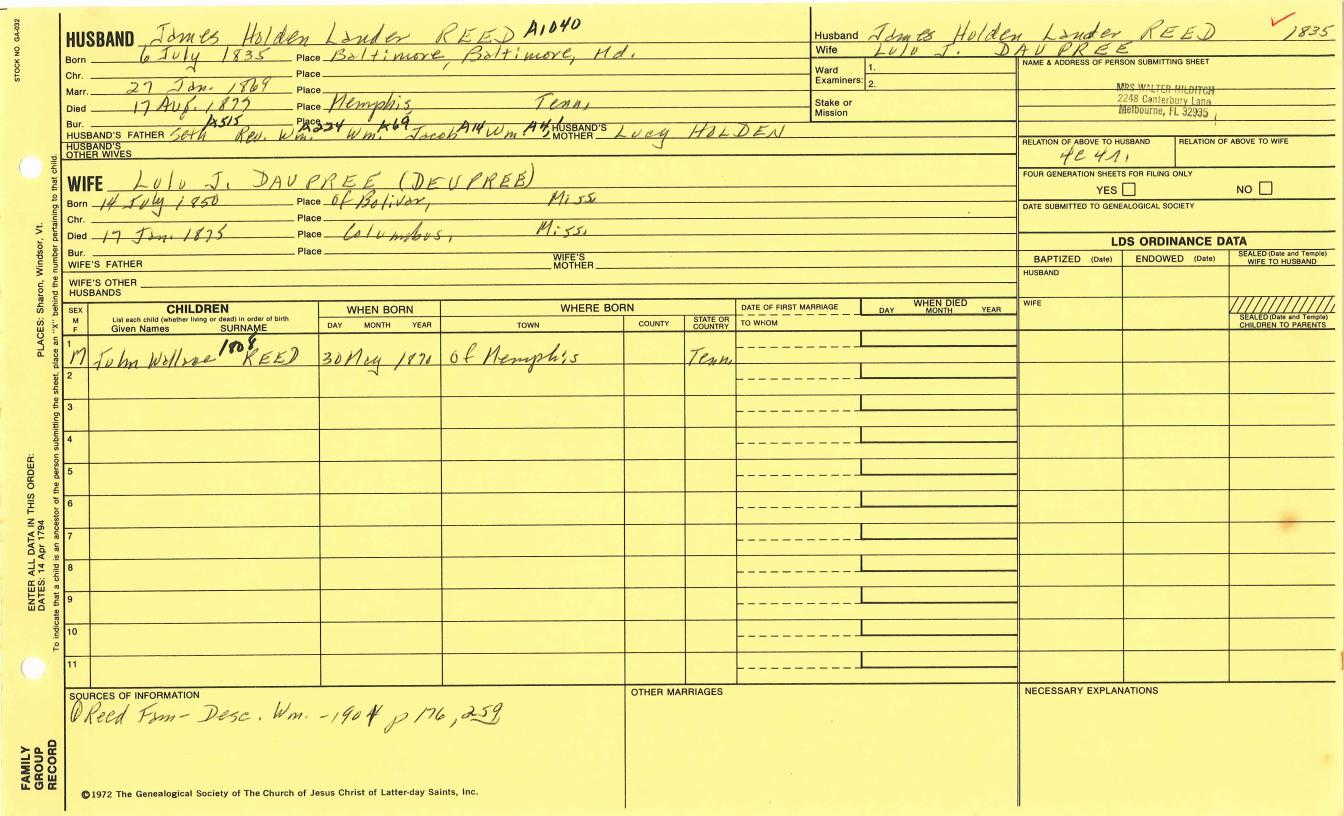 STOCK NO. GA-032
HUSBAND James Holden Lander REED A1040
Born 6 July 1835 Place Baltimore, Baltimore, Md.
Chr. Place
Marr. 27 Jan. 1869 Place
Died 17 Aug. 1877 Place Memphis Tenn.
Bur. Place
A515 A224 A69 A14 A4
HUSBAND'S FATHER Seth Rev. Wm. Wm. Jacob Wm HUSBAND'S MOTHER Lucy HOLDEN
HUSBAND'S OTHER WIVES
WIFE Lulu J. DAUPREE (DEUPREE)
Born 14 July 1850 Place of Bolivar, Miss
Chr. Place
Died 17 Jan. 1875 Place Columbus, Miss.
Bur. Place
WIFE'S FATHER WIFE'S MOTHER
WIFE'S OTHER HUSBANDS
Husband James Holden Lander REED 1835
Wife Lulu J. DAUPREE
Ward Examiners: 1. 2.
Stake or Mission
NAME & ADDRESS OF PERSON SUBMITTING SHEET
MRS WALTER HILDITCH
2248 Canterbury Lane
Melbourne, FL 32935
RELATION OF ABOVE TO HUSBAND RELATION OF ABOVE TO WIFE
4C 4r.
FOUR GENERATION SHEETS FOR FILING ONLY
YES NO
DATE SUBMITTED TO GENEALOGICAL SOCIETY
LDS ORDINANCE DATA
BAPTIZED (Date) ENDOWED (Date) SEALED (Date and Temple) WIFE TO HUSBAND
HUSBAND
WIFE
SEALED (Date and Temple) CHILDREN TO PARENTS
SEX M F
CHILDREN
List each child (whether living or dead) in order of birth
Given Names SURNAME
WHEN BORN
DAY MONTH YEAR
WHERE BORN
TOWN COUNTY STATE OR COUNTRY
DATE OF FIRST MARRIAGE
TO WHOM
WHEN DIED
DAY MONTH YEAR
1 M John Wallace 1808 REED 30 May 1870 of Memphis Tenn
2
3
4
5
6
7
8
9
10
11
SOURCES OF INFORMATION
① Reed Fam- Desc. Wm. -1904 p 176, 259
OTHER MARRIAGES
NECESSARY EXPLANATIONS
©1972 The Genealogical Society of The Church of Jesus Christ of Latter-day Saints, Inc.
FAMILY GROUP RECORD
ENTER ALL DATA IN THIS ORDER:
DATES: 14 Apr 1794
PLACES: Sharon, Windsor, Vt.
To indicate that a child is an ancestor of the person submitting the sheet, place an "X" behind the number pertaining to that child.